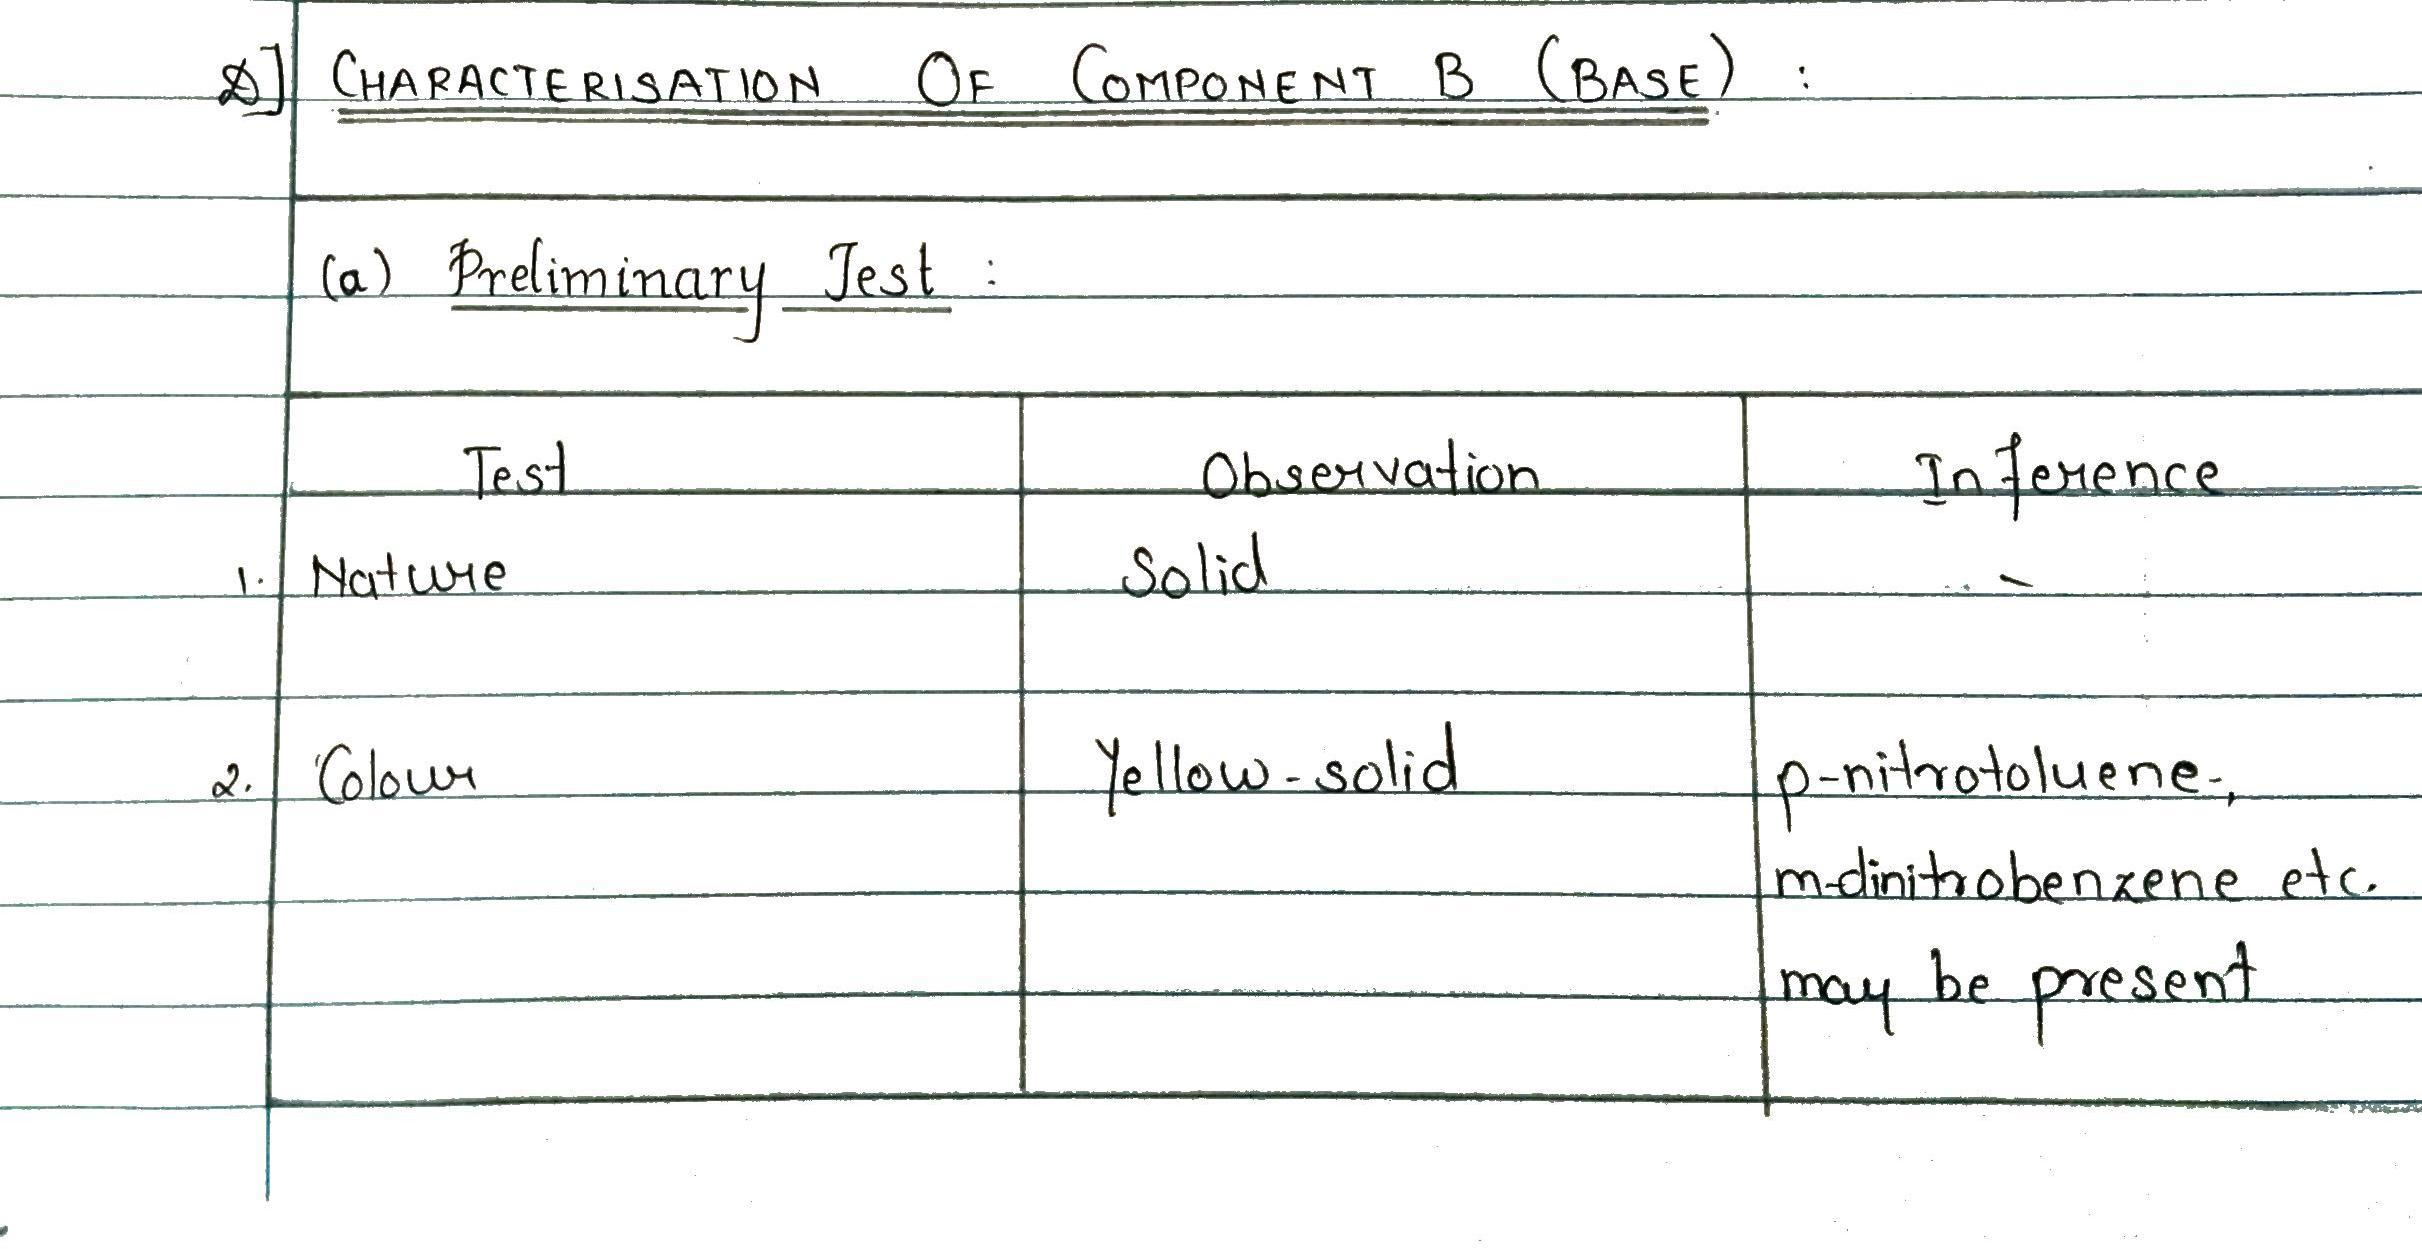 D] CHARACTERISATION OF COMPONENT B (BASE) :
(a) Preliminary Test :
Test Observation Inference
1. Nature Solid -
2. Colour Yellow-solid p-nitrotoluene-,
m-dinitrobenzene etc.
may be present